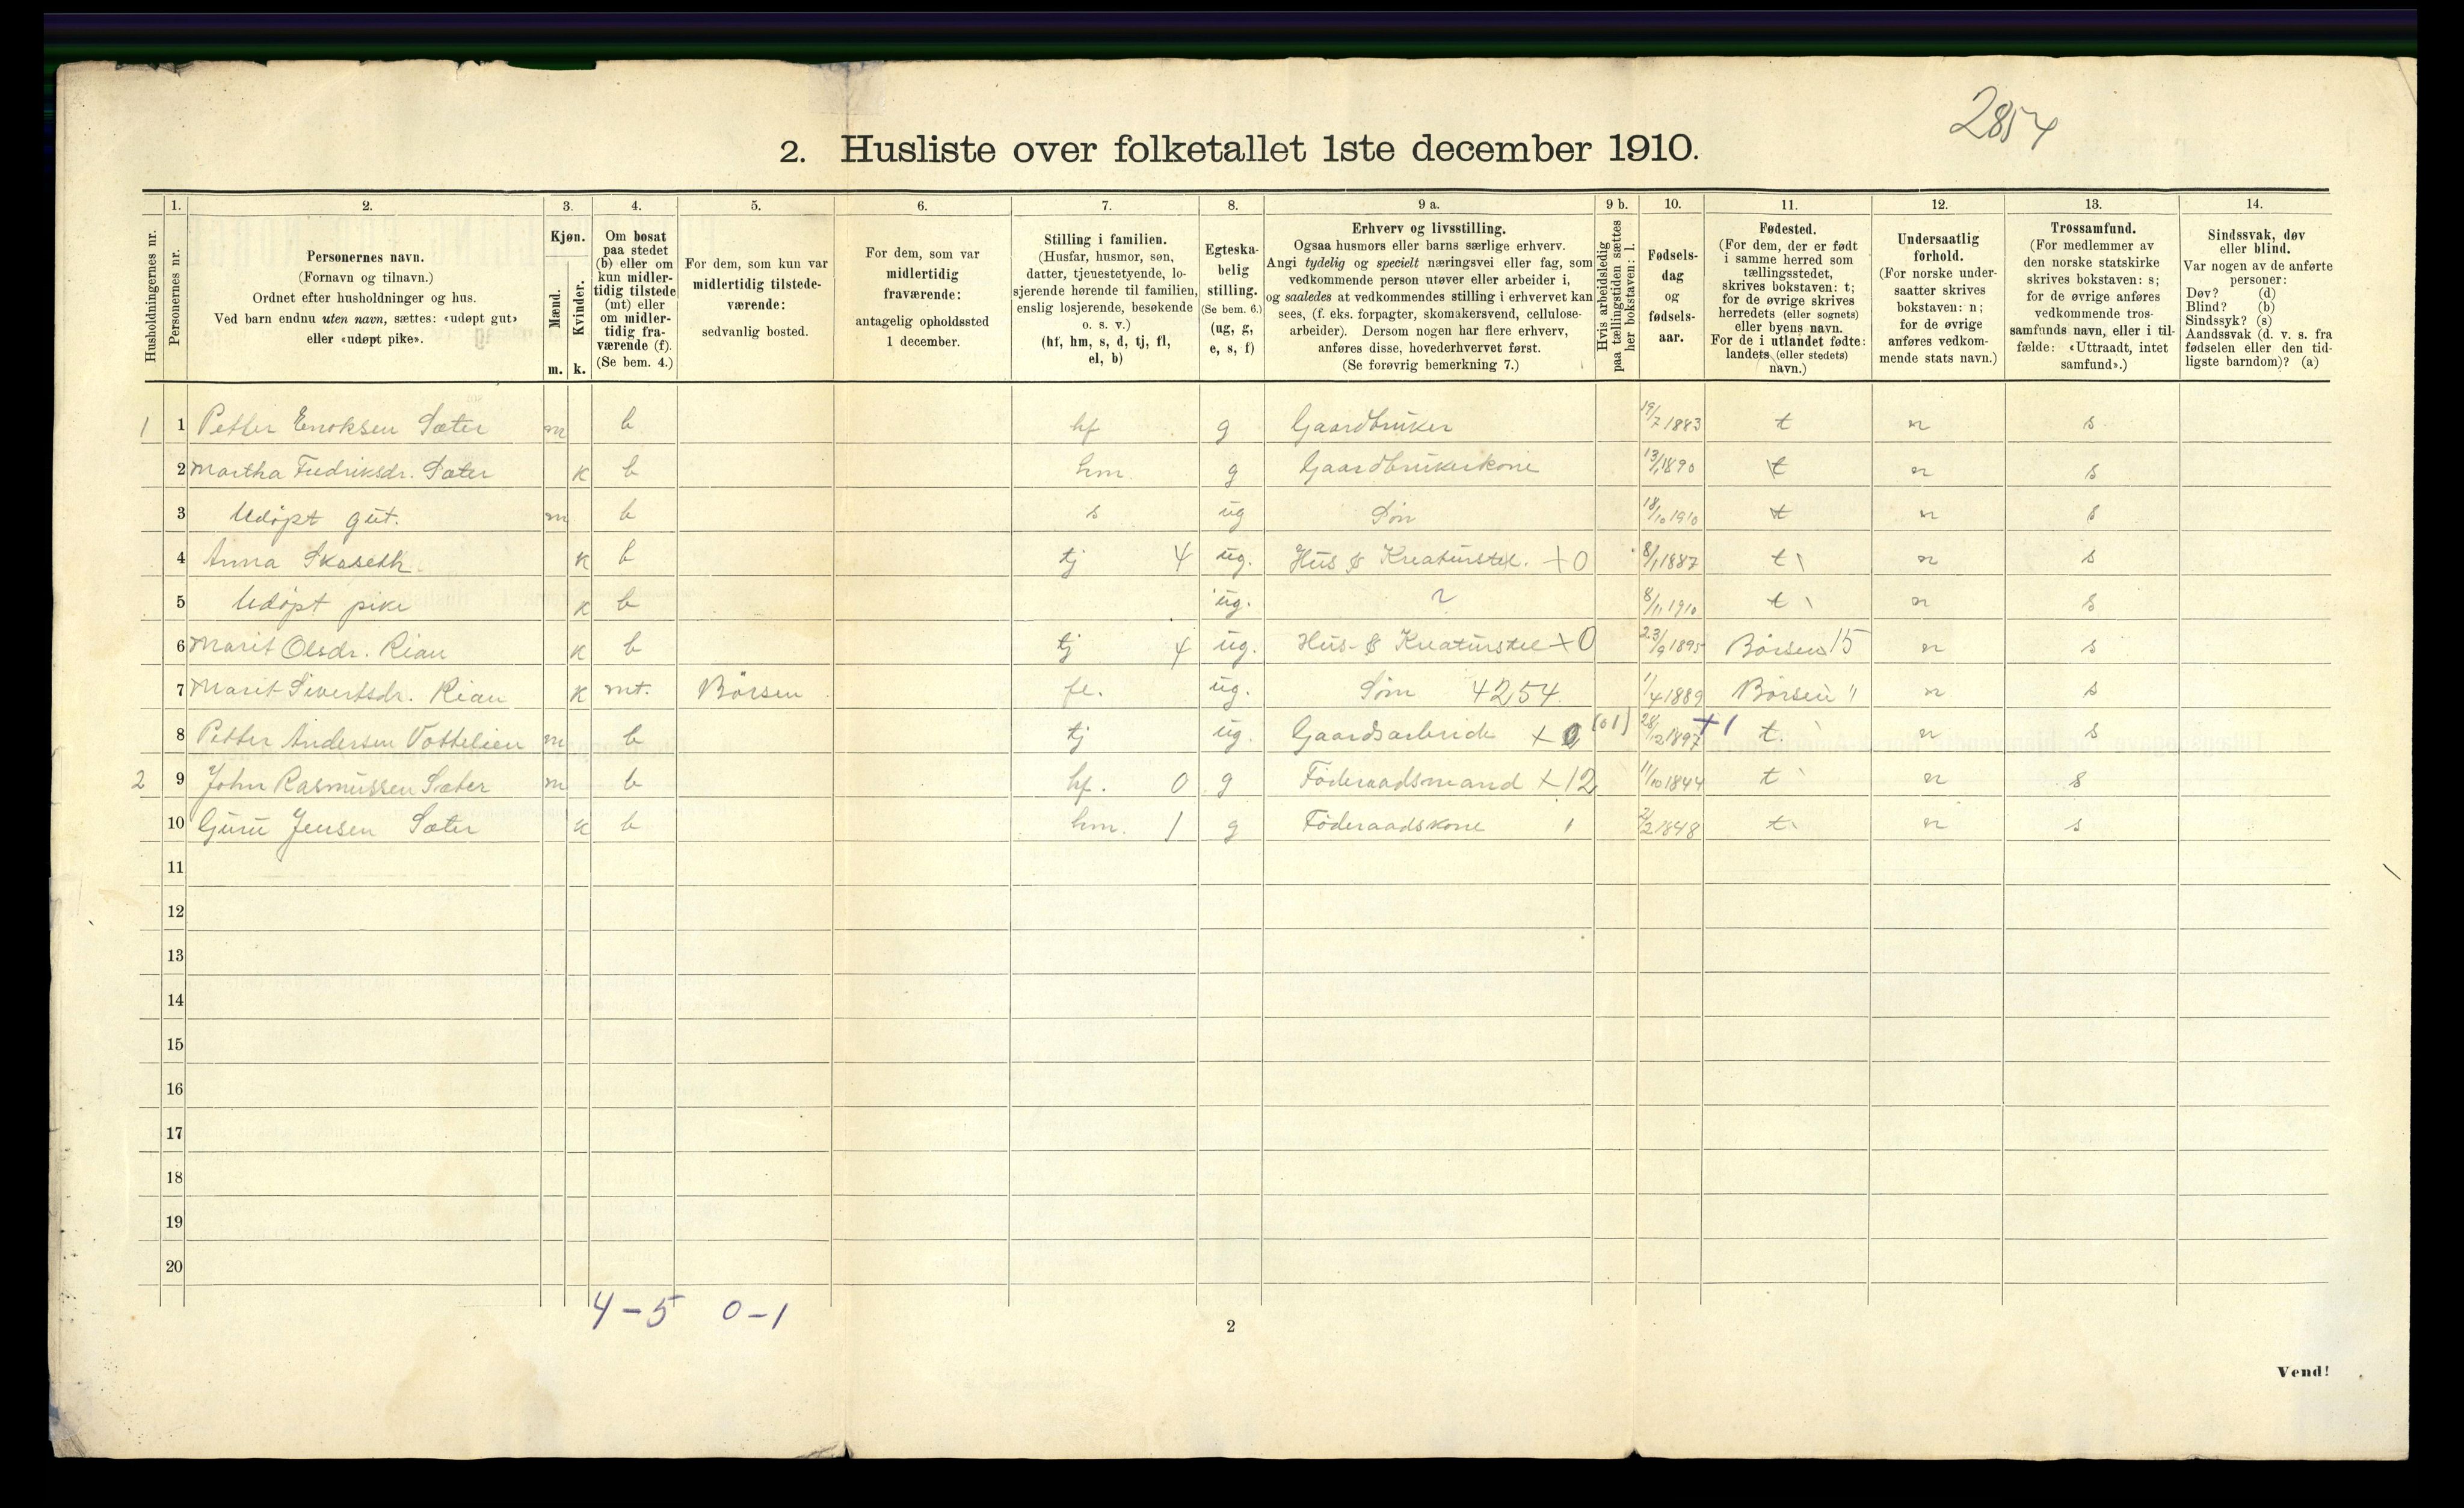 2854
2. Husliste over folketallet 1ste december 1910.
Husholdningernes nr.
1.
Personernes nr.
2.
Personernes navn.
(Fornavn og tilnavn.)
Ordnet efter husholdninger og hus.
Ved barn endnu uten navn, sættes: «udøpt gut»
eller «udøpt pike».
3.
Kjøn.
Mænd.
Kvinder.
m. k.
4.
Om bosat
paa stedet
(b) eller om
kun midler-
tidig tilstede
(mt) eller
om midler-
tidig fra-
værende (f).
(Se bem. 4.)
5.
For dem, som kun var
midlertidig tilstede-
værende:
sedvanlig bosted.
6.
For dem, som var
midlertidig
fraværende:
antagelig opholdssted
1 december.
7.
Stilling i familien.
(Husfar, husmor, søn,
datter, tjenestetyende, lo-
sjerende hørende til familien,
enslig losjerende, besøkende
o. s. v.)
(hf, hm, s, d, tj, fl,
el, b)
8.
Egteska-
belig
stilling.
(Se bem. 6.)
(ug, g,
e, s, f)
9 a.
Erhverv og livsstilling.
Ogsaa husmors eller barns særlige erhverv.
Angi tydelig og specielt næringsvei eller fag, som
vedkommende person utøver eller arbeider i,
og saaledes at vedkommendes stilling i erhvervet kan
sees, (f. eks. forpagter, skomakersvend, cellulose-
arbeider). Dersom nogen har flere erhverv,
anføres disse, hovederhvervet først.
(Se forøvrig bemerkning 7.)
9 b.
Hvis arbeidsledig
paa tællingstiden sættes
her bokstaven: l.
10.
Fødsels-
dag
og
fødsels-
aar.
11.
Fødested.
(For dem, der er født
i samme herred som
tællingsstedet,
skrives bokstaven: t;
for de øvrige skrives
herredets (eller sognets)
eller byens navn.
For de i utlandet fødte:
landets (eller stedets)
navn.)
12.
Undersaatlig
forhold.
(For norske under-
saatter skrives
bokstaven: n;
for de øvrige
anføres vedkom-
mende stats navn.)
13.
Trossamfund.
(For medlemmer av
den norske statskirke
skrives bokstaven: s;
for de øvrige anføres
vedkommende tros-
samfunds navn, eller i til-
fælde: «Uttraadt, intet
samfund».)
14.
Sindssvak, døv
eller blind.
Var nogen av de anførte
personer:
Døv? (d)
Blind? (b)
Sindssyk? (s)
Aandssvak (d. v. s. fra
fødselen eller den tid-
ligste barndom)? (a)
1 1 Petter Enoksen Sæter m b hf g Gaardbruker 19/7 1883 t n s
2 Martha Fredriksdr. Sæter k b hm g Gaardbrukerkone 13/1 1890 t n s
3 Udøpt gut. m b s ug Søn 18/10 1910 t n s
4 Anna Skaseth k b tj 4 ug. Hus & Kreaturstel. +0 8/1 1887 t n s
5 Udøpt pike k b ug. 8/11 1910 t n s
6 Marit Olsdr. Rian k b tj 4 ug. Hus- & Kreaturstel +0 23/9 1895 Børsen 15 n s
7 Marit Sivertsdr. Rian k mt. Børsen fl. ug. Søm 4254 1/4 1889 Børsen " n s
8 Petter Andersen Vottelien m b tj ug. Gaardsarbeide +0 (01) 28/12 1897 +1 t. n s
2 9 John Rasmussen Sæter m b hf. 0 g Föderaadsmand +12 11/10 1844 t n s
10 Guru Jensen Sæter k b hm. 1 g Föderaadskone 1 2/2 1848 t n s
11
12
13
14
15
16
17
18
19
20
4 - 5 0 - 1
2
Vend!